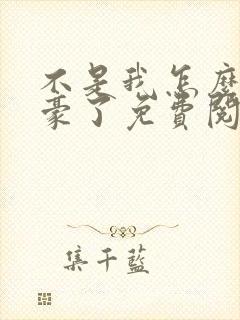 不是我怎麼
豪了免費閱
集千藍